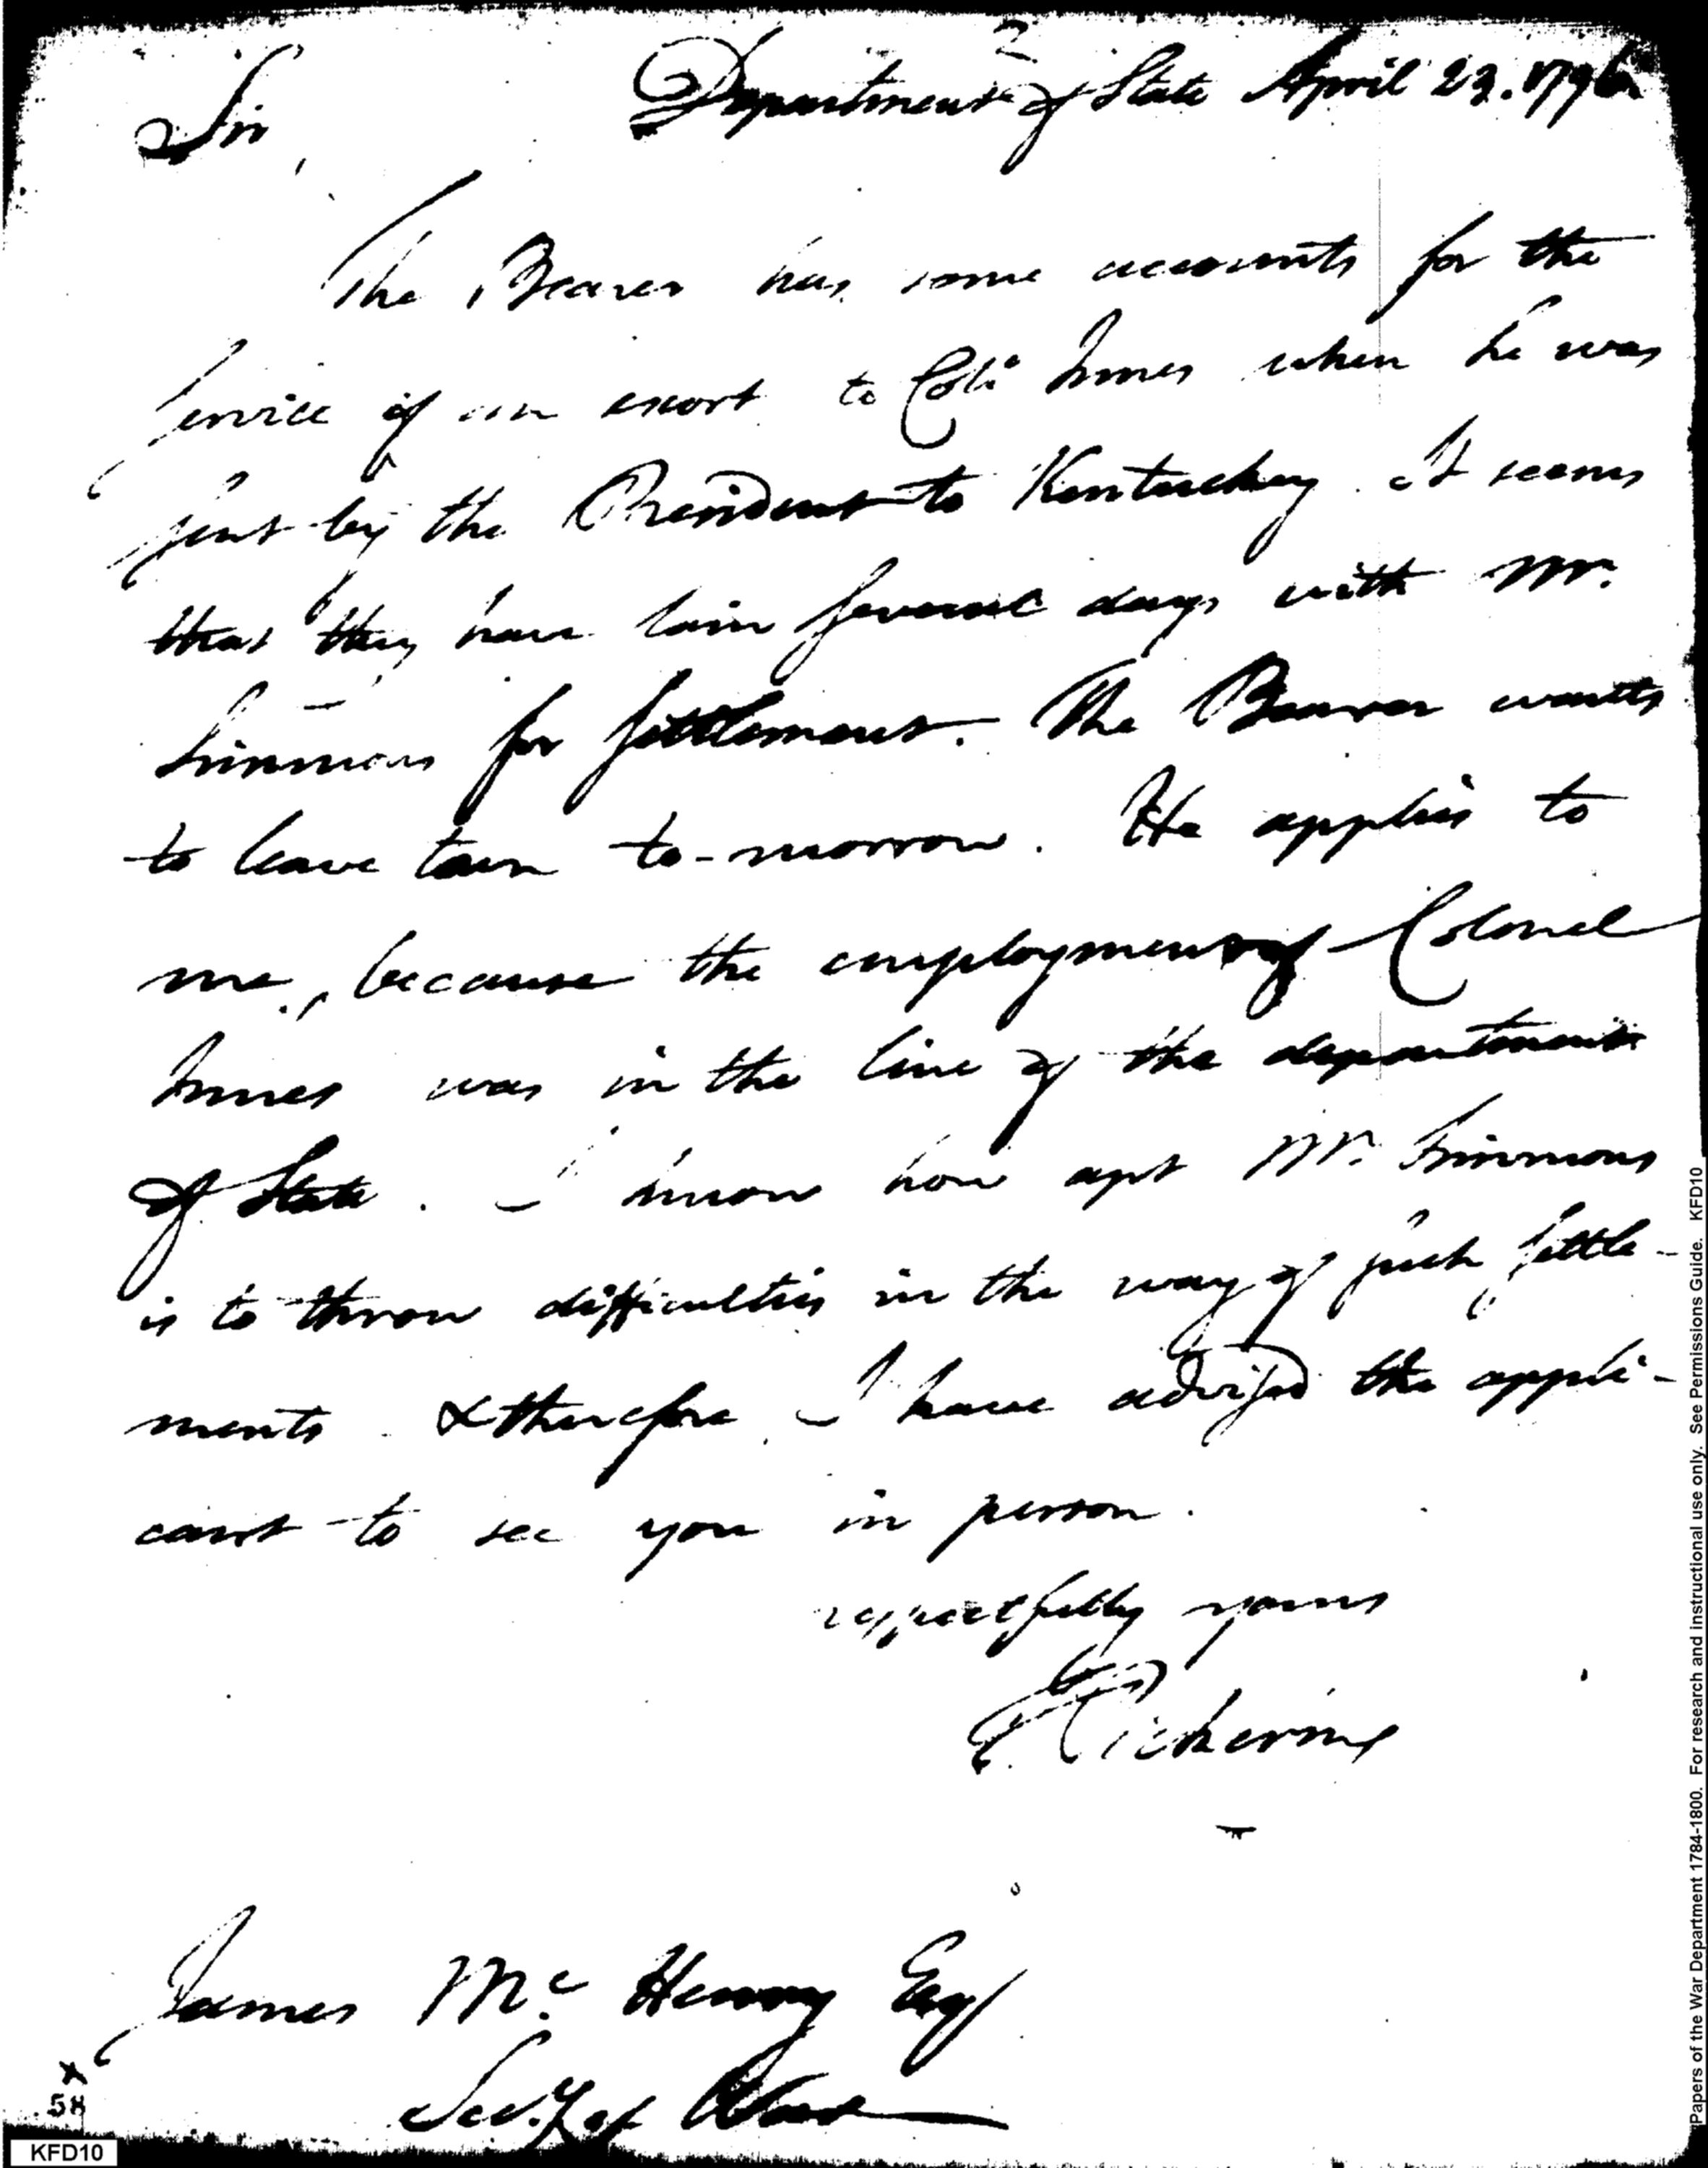 Department of State April 23. 1796.
Sir,
The Bearer has some accounts for the
service of an escort to Colo. Innes when he was
sent by the President to Kentuckey. It seems
that they have lain several days with Mr.
Simmons for settlement. The Bearer wants
to leave town to-morrow. He applies to
me, because the employment of Colonel
Innes was in the line of the department
of State. I know how apt Mr. Simmons
is to throw difficulties in the way of such settle-
ments & therefore I have advised the appli-
cant to see you in person.
respectfully yours
T. Pickering
James Mc. Henry Esq
Secy. of War
x
58
KFD10
Papers of the War Department 1784-1800. For research and instructional use only. See Permissions Guide. KFD10